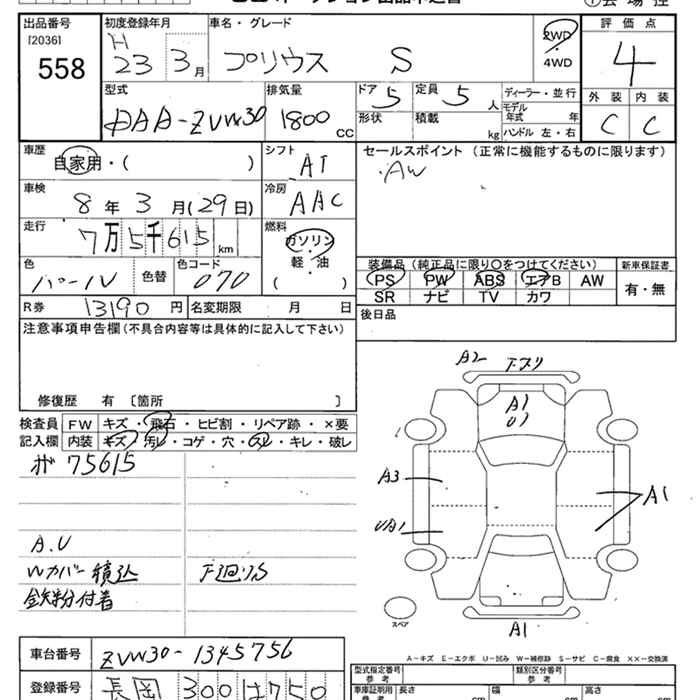 出品番号 初度登録年月 車名・グレード 評価点
[2036] H 23 3月 プリウス S 2WD・4WD 4
558
型式 排気量 ドア 5 定員 5人 ディーラー・並行 外装 内装
DAA-ZVW30 1800cc 形状 積載 kg モデル年式 年 C C
ハンドル 左・右
車歴 シフト セールスポイント (正常に機能するものに限ります)
自家用・( ) AT ・AW
車検 冷房
8年3月(29日) AAC
走行 燃料
7万5千615km ガソリン・軽・油
色 色替 色コード ( ) 装備品 (純正品に限り○をつけてください) 新車保証書
パール 070 PS PW ABS エアB AW 有・無
R券 13190円 名変期限 月 日 SR ナビ TV カワ
注意事項申告欄 (不具合内容等は具体的に記入して下さい) 後日品
修復歴 有 〔箇所 〕
検査員 FW キズ・飛石・ヒビ割・リペア跡・×要
記入欄 内装 キズ・汚レ・コゲ・穴・スレ・キレ・破レ
75615
A2
A1
U1
A3
UA1
A1
A.U
Wカバー積込 下廻りS
鉄粉付着
スペア
A1
A-キズ E-エクボ U-凹み W-補修跡 S-サビ C-腐食 XX-交換済
車台番号 ZVW30-1345756 型式指定番号 参考 類別区分番号 参考
登録番号 長岡 300 は 750 車庫証明用 参考 長さ cm 幅 cm 高さ cm